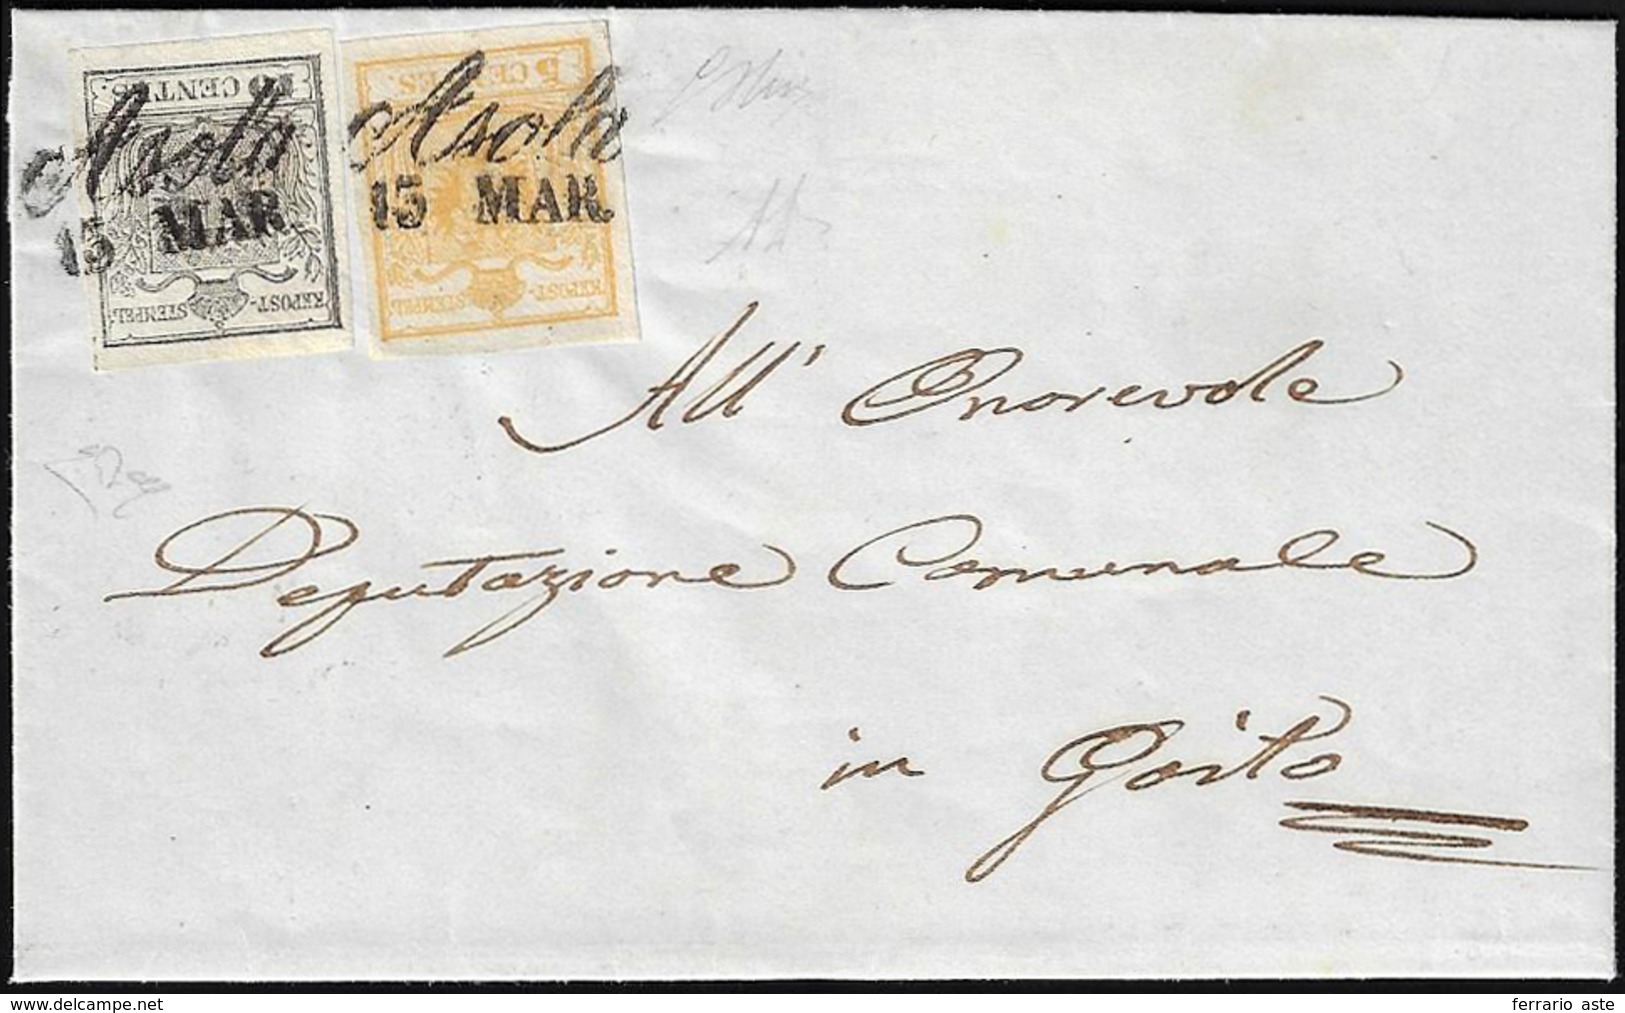 10 CENTES.
5 CENTES.
Asola
15 MAR.
Asola
15 MAR.
KKPOST-
STEMPEL
KKPOST-
STEMPEL
All' Onorevole
Deputazione Comunale
in Goito
ferrario aste
www.delcampe.net